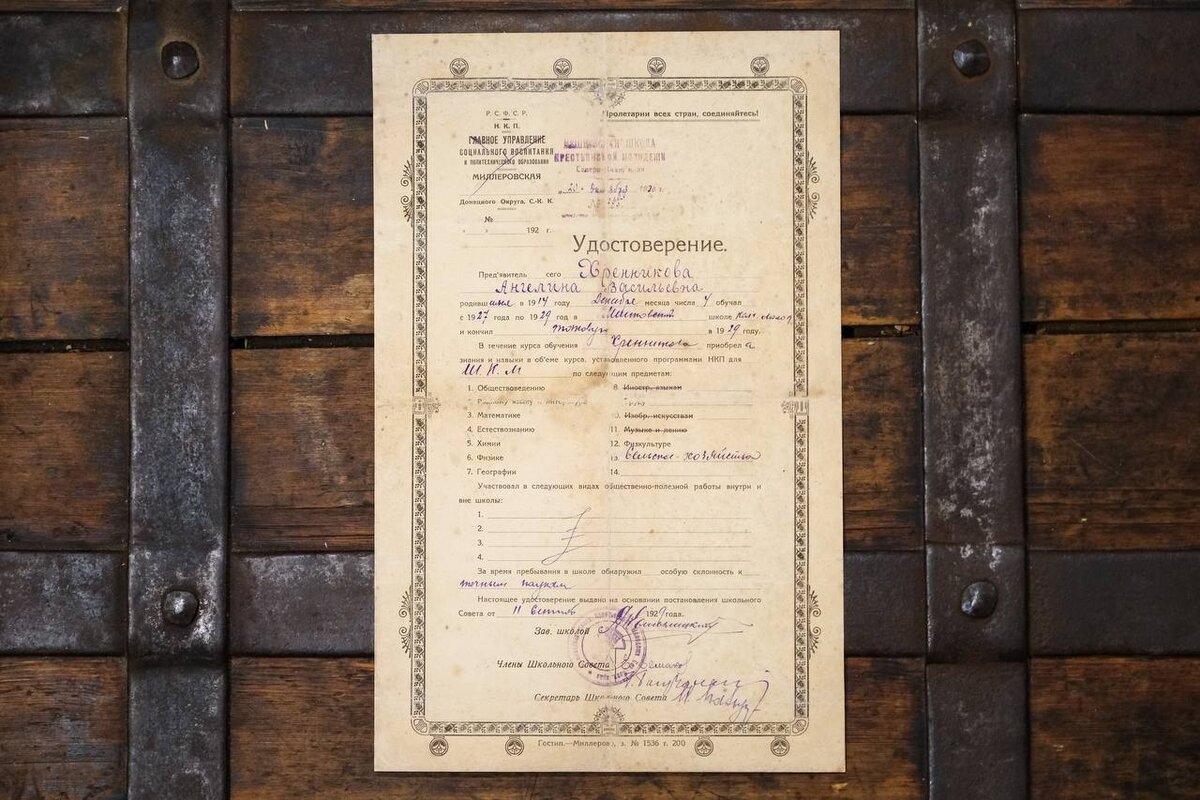 Р. С. Ф. С. Р.
Н. К. П.
ГЛАВНОЕ УПРАВЛЕНИЕ
СОЦИАЛЬНОГО ВОСПИТАНИЯ
И ПОЛИТЕХНИЧЕСКОГО ОБРАЗОВАНИЯ
МИЛЛЕРОВСКАЯ
Донецкого Округа, С.-К. К.
№
192 г.
Пролетарии всех стран, соединяйтесь!
ШКОЛА
КРЕСТЬЯНСКОЙ МОЛОДЕЖИ
Удостоверение.
Пред'явитель сего Хренникова
Ангелина Васильевна
родившаяся в 1914 году Декабре месяца числа 4 обучал
с 1927 года по 1929 год в школе
и кончил в 1929 году.
В течение курса обучения Хренникова приобрела
знания и навыки в об'еме курса, установленного программами НКП для
Ш К М по следующим предметам:
1. Обществоведению
2. Родному языку и литературе
3. Математике
4. Естествознанию
5. Химии
6. Физике
7. Географии
8. Иностр. языкам
10. Изобр. искусствам
11. Музыке и пению
12. Физкультуре
13. Сельское-хозяйство
14.
Участвовал в следующих видах общественно-полезной работы внутри и
вне школы:
1.
2.
3.
4.
За время пребывания в школе обнаружил особую склонность к
точным наукам
Настоящее удостоверение выдано на основании постановления школьного
Совета от 11 1929 года.
Зав. школой
Члены Школьного Совета
Секретарь Школьного Совета
Гостип.—Миллерово, з. № 1536 т. 200